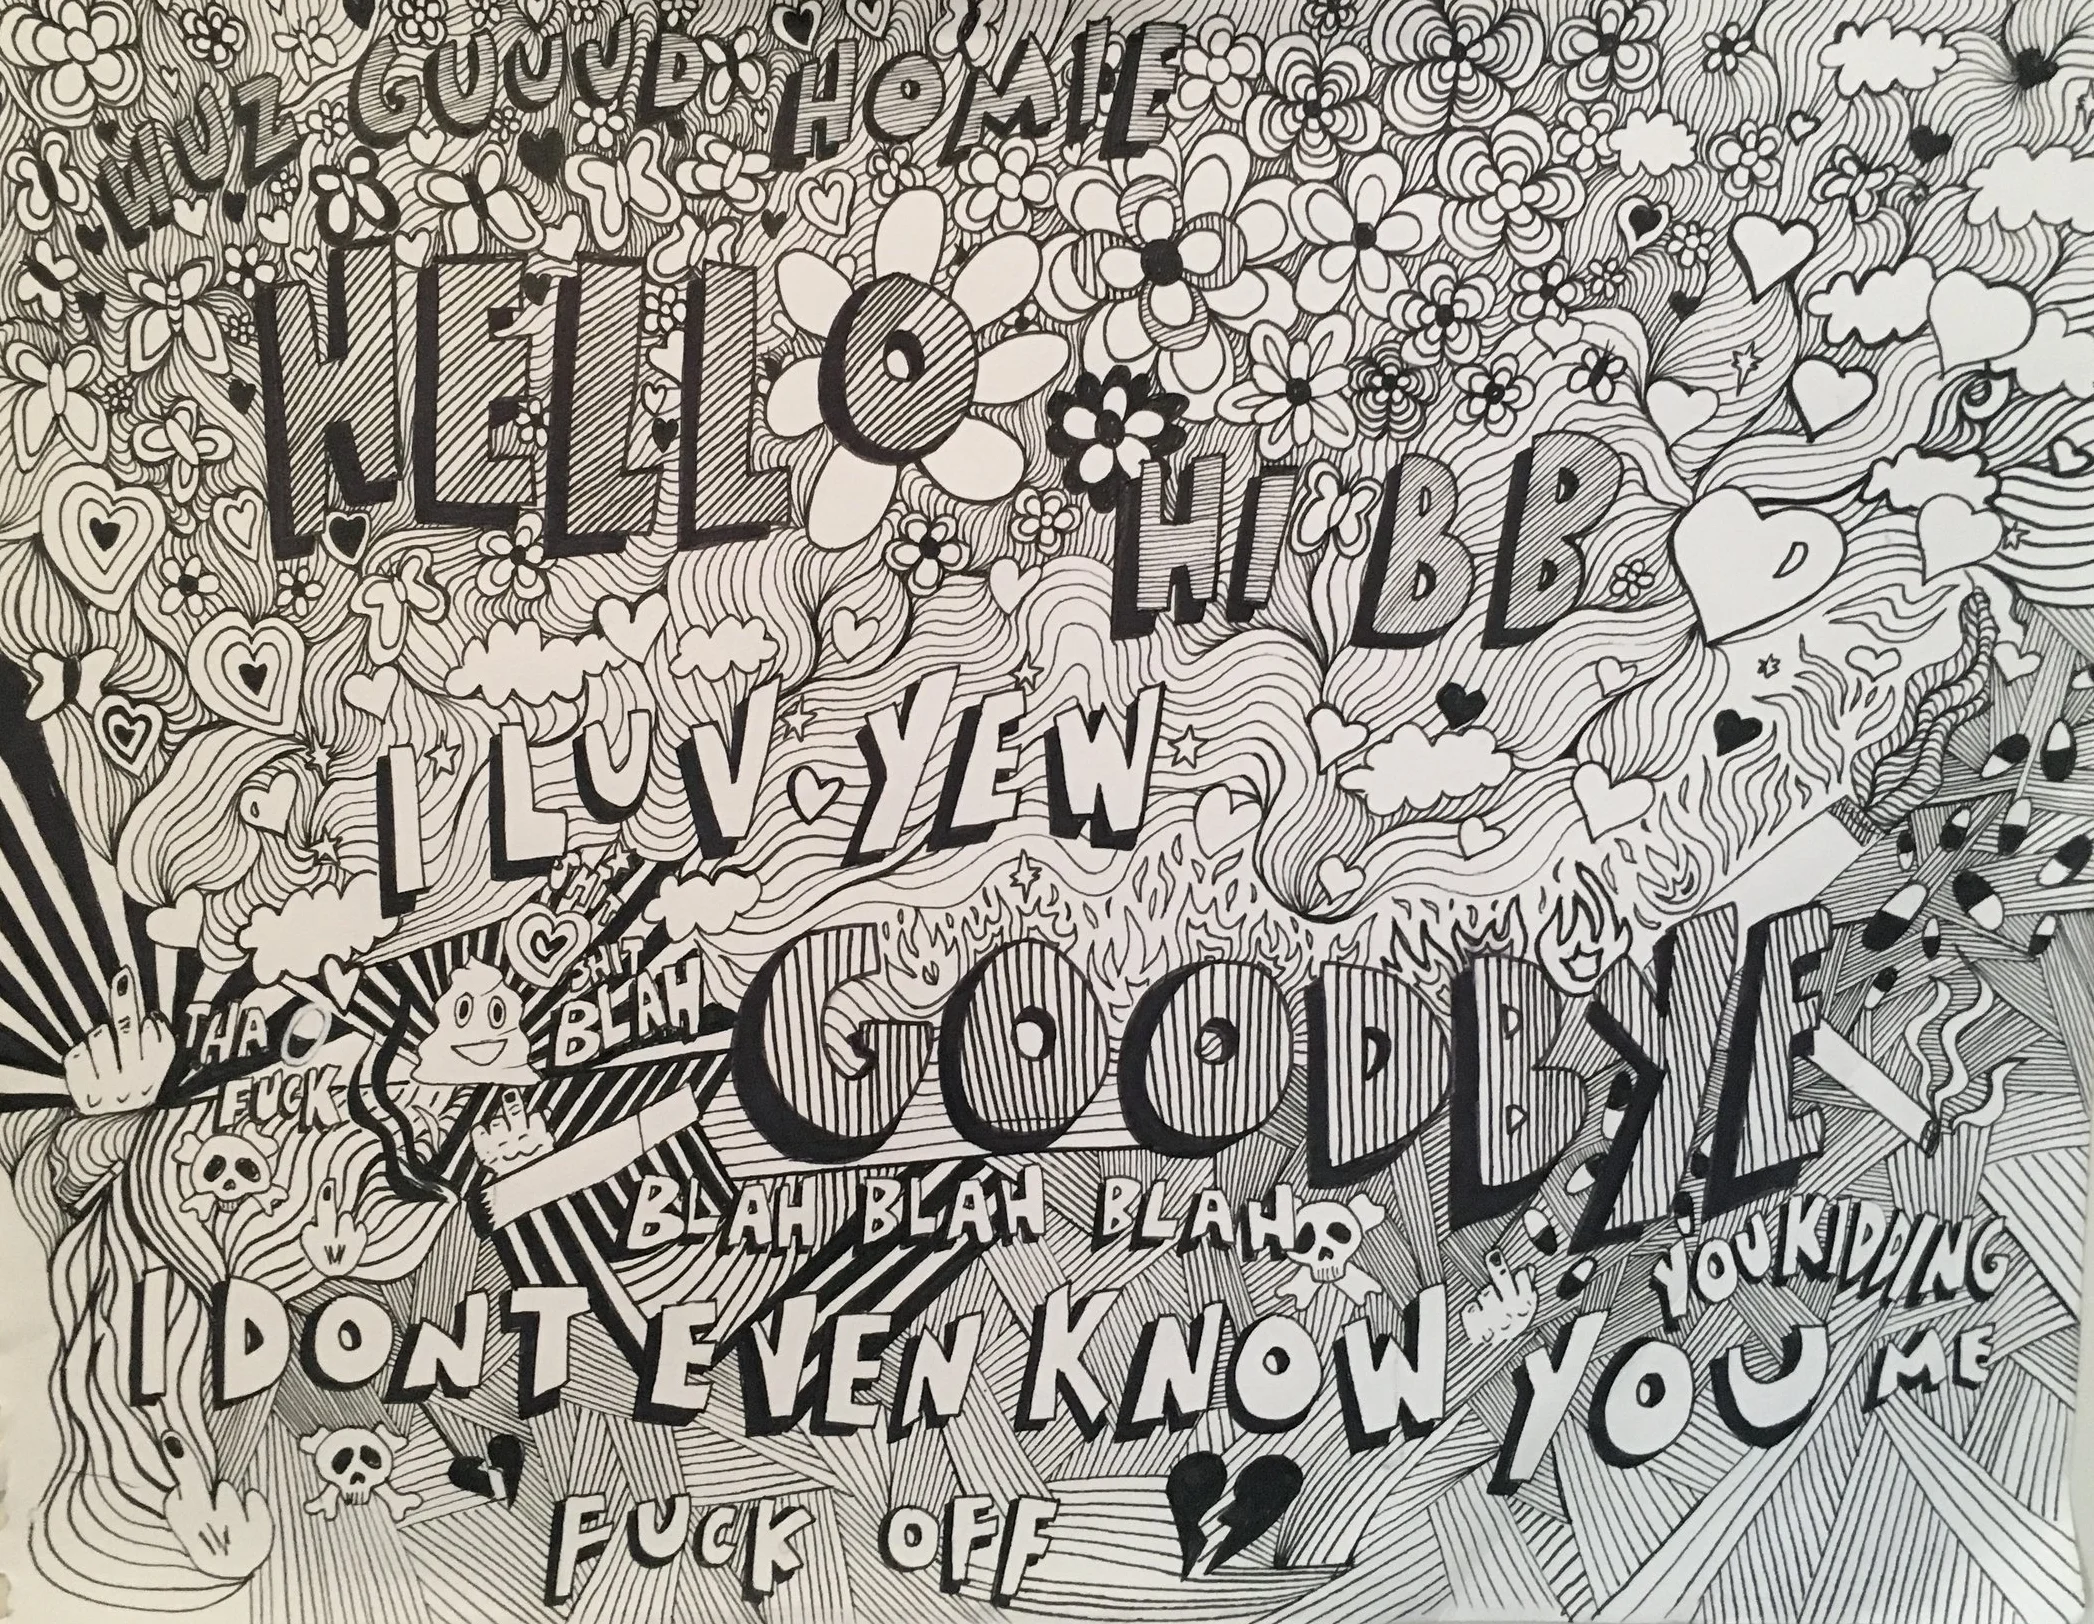 WUZ GUUUD HOMIE
HELLO
HI BB
I LUV YEW
SHIT
SHIT
BLAH
THA
FUCK
GOODBYE
BLAH BLAH BLAH
YOU KIDDING
ME
I DONT EVEN KNOW YOU
FUCK OFF